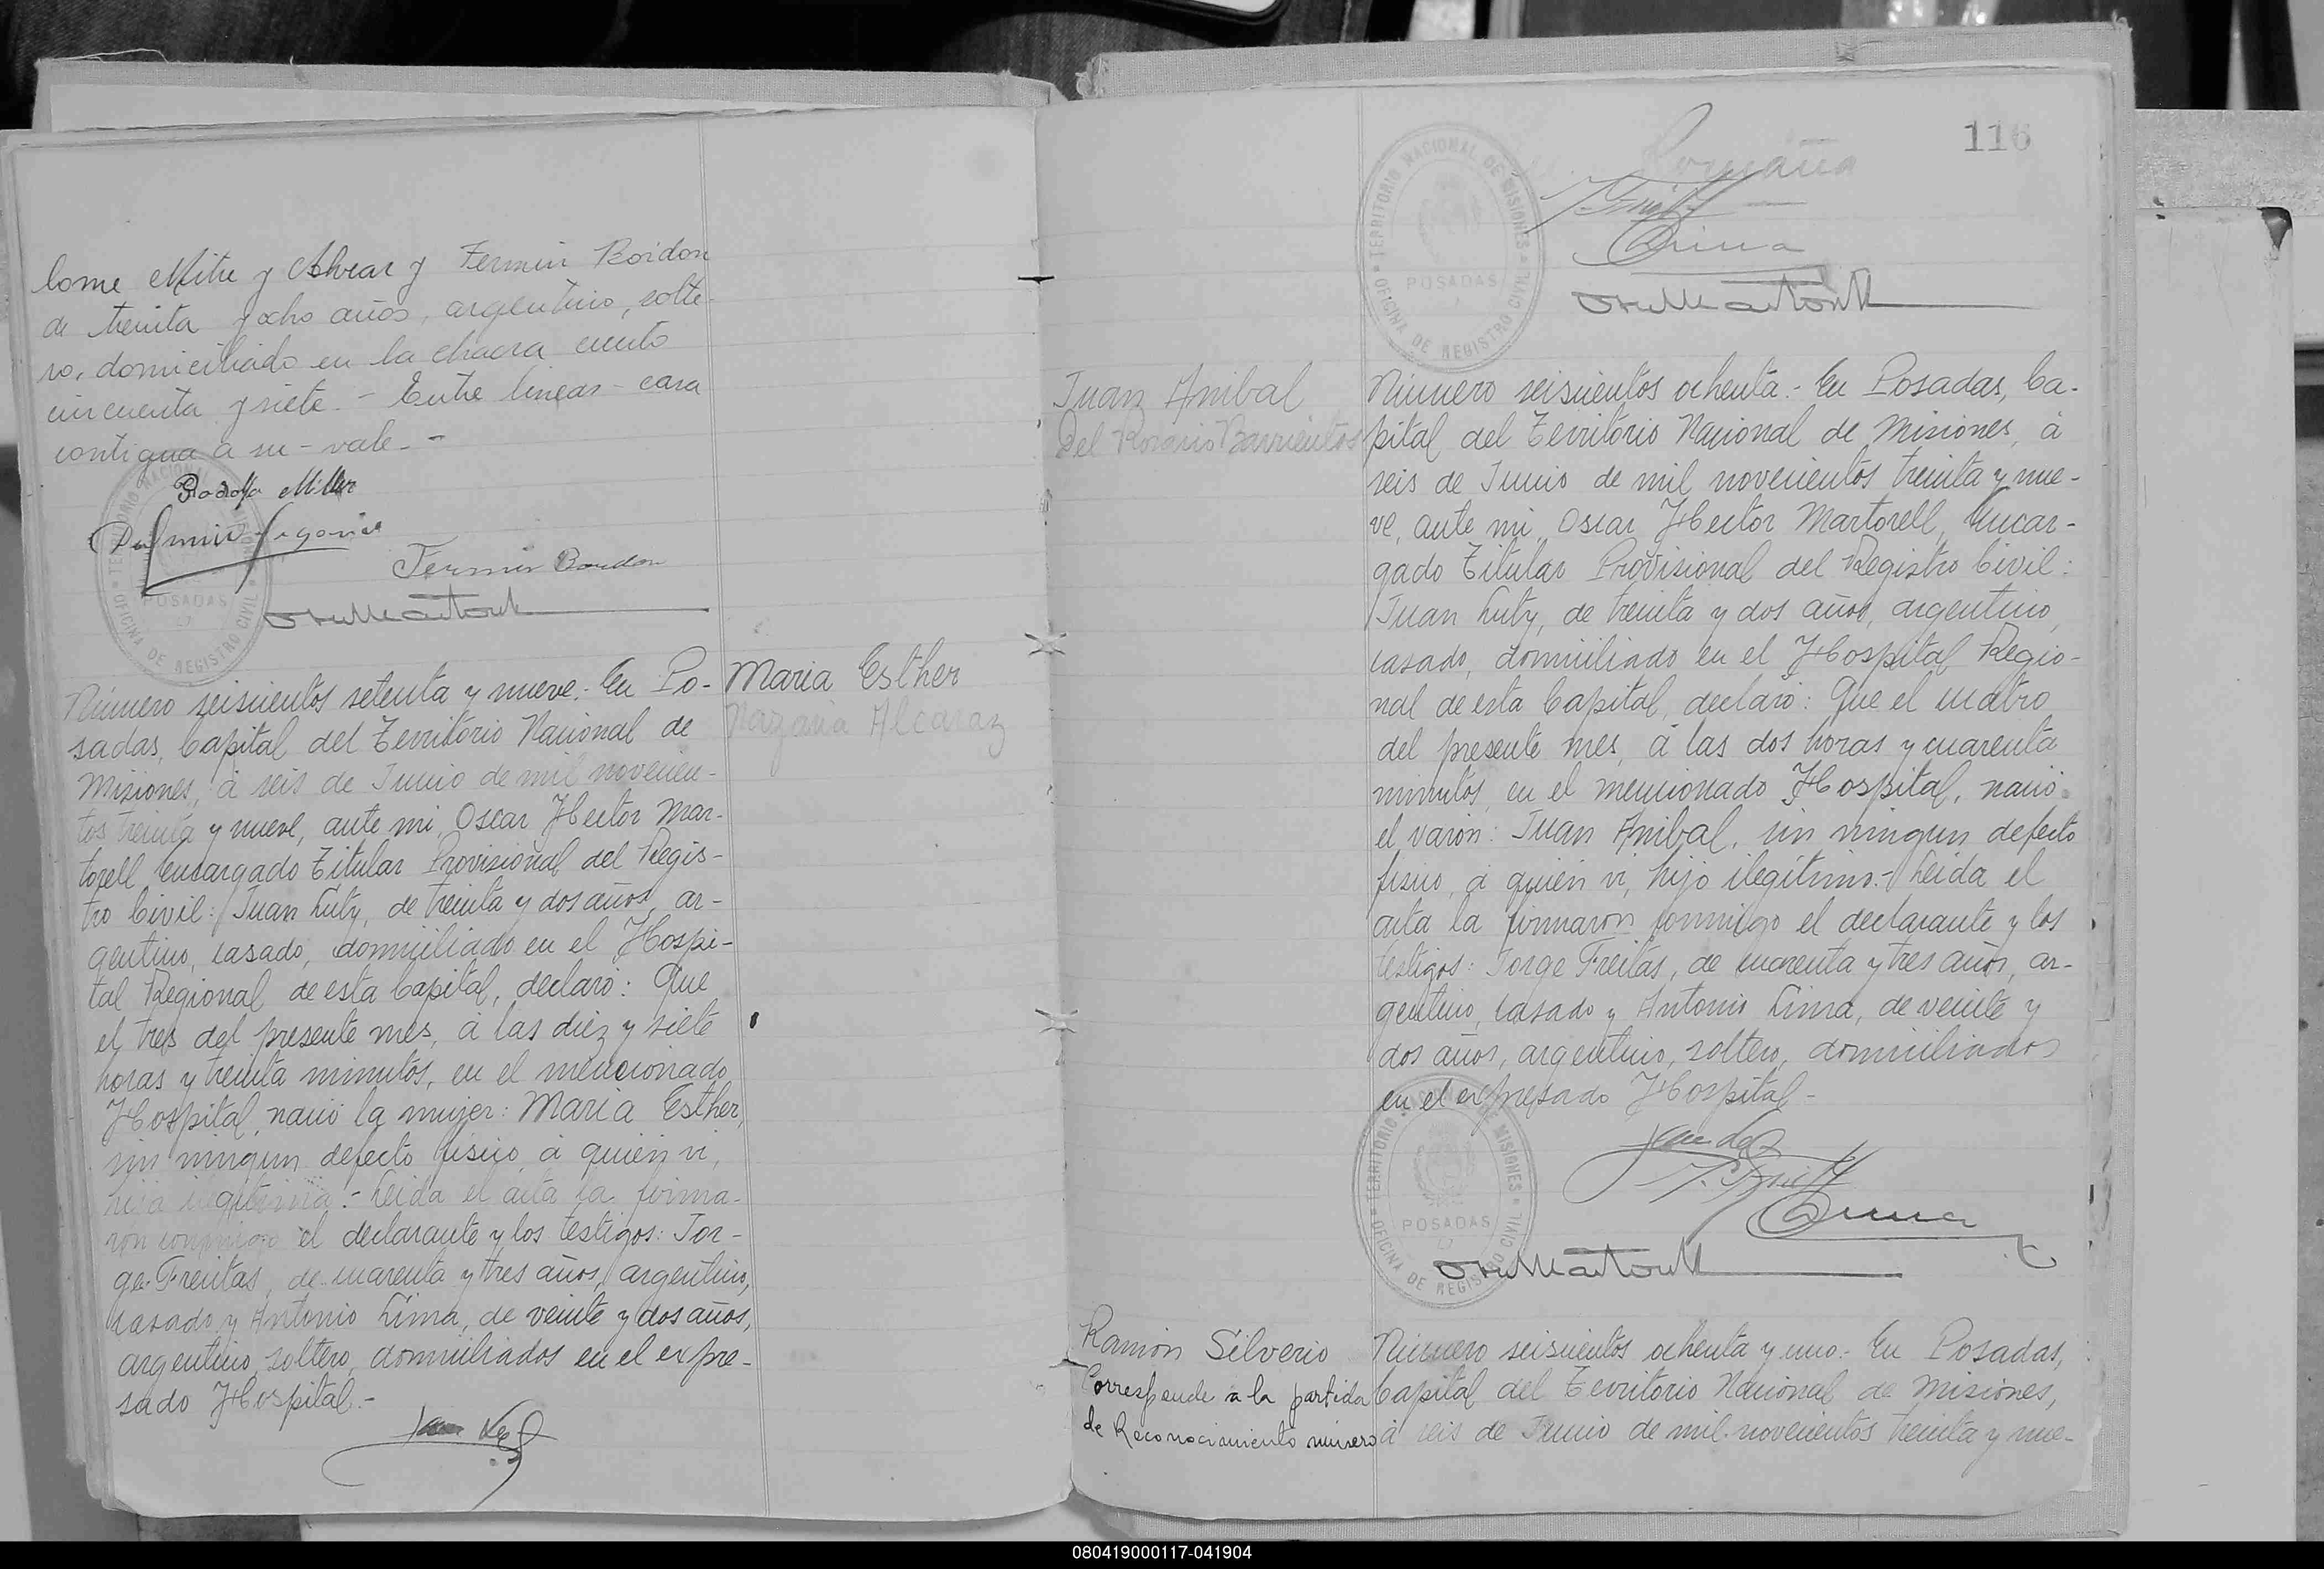 lome Mitre y Alvear y Fermin Bordon
de treinta y ocho años, argentino, solte-
ro, domiciliado en la chacra ciento
cincuenta y siete.- Entre lineas - casa
contigua a su - vale.-
Fermin Bordon
TERRITORIO NACIONAL DE MISIONES
POSADAS
OFICINA DE REGISTRO CIVIL
Número seiscientos setenta y nueve.- En Po-
sadas, Capital del Territorio Nacional de
Misiones, á seis de Junio de mil novecien-
tos treinta y nueve, ante mi, Oscar Hector Mar-
torell Encargado Titular Provisional del Regis-
tro Civil: Juan Luty, de treinta y dos años, ar-
gentino, casado, domiciliado en el Hospi-
tal Regional de esta Capital, declaró: Que
el tres del presente mes, á las diez y siete
horas y treinta minutos, en el mencionado
Hospital, nació la mujer: Maria Esther,
sin ningun defecto fisico, á quien vi,
hija ilegitima.- Leida el acta la firma-
ron conmigo el declarante y los testigos: Jor-
ge Freitas, de cuarenta y tres años, argentino,
casado y Antonio Lima, de veinte y dos años,
argentino, soltero, domiciliados en el expre-
sado Hospital.-
Maria Esther
Nazaria Alcaraz
116
TERRITORIO NACIONAL DE MISIONES
POSADAS
OFICINA DE REGISTRO CIVIL
Juan Anibal
Del Rosario Barrientos
Número seiscientos ochenta.- En Posadas, Ca-
pital del Territorio Nacional de Misiones, á
seis de Junio de mil novecientos treinta y nue-
ve, ante mi, Oscar Hector Martorell, Encar-
gado Titular Provisional del Registro Civil:
Juan Luty, de treinta y dos años, argentino,
casado, domiciliado en el Hospital Regio-
nal de esta Capital, declaró: Que el cuatro
del presente mes, á las dos horas y cuarenta
minutos, en el mencionado Hospital, nació
el varón: Juan Anibal, sin ningun defecto
fisico, á quien vi, hijo ilegitimo.- Leida el
acta la firmaron conmigo el declarante y los
testigos: Jorge Freitas, de cuarenta y tres años, ar-
gentino, casado y Antonio Lima, de veinte y
dos años, argentino, soltero, domiciliados
en el expresado Hospital.-
TERRITORIO NACIONAL DE MISIONES
POSADAS
OFICINA DE REGISTRO CIVIL
Ramón Silverio
Corresponde a la partida
de Reconocimiento número
Número seiscientos ochenta y uno.- En Posadas,
Capital del Territorio Nacional de Misiones,
á seis de Junio de mil novecientos treinta y nue-
080419000117-041904